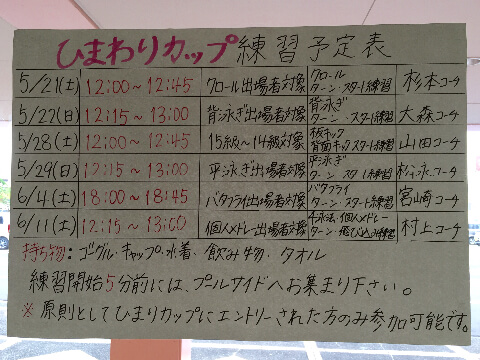 ひまわりカップ 練習予定表
5/21(土) 12:00～12:45 クロール出場者対象 クロール ターン・スタート練習 杉本コーチ
5/22(日) 12:15～13:00 背泳ぎ出場者対象 背泳ぎ ターン・スタート練習 大森コーチ
5/28(土) 12:00～12:45 15級～14級対象 板キック 背面キックスタート練習 山田コーチ
5/29(日) 12:15～13:00 平泳ぎ出場者対象 平泳ぎ ターン・スタート練習 松永コーチ
6/4(土) 18:00～18:45 バタフライ出場者対象 バタフライ ターン・スタート練習 宮崎コーチ
6/11(土) 12:15～13:00 個人メドレー出場者対象 4泳法・個人メドレー ターン・飛び込み練習 村上コーチ
持ち物：ゴーグル・キャップ・水着・飲み物・タオル
練習開始5分前には、プールサイドへお集まり下さい。
※原則としてひまりカップにエントリーされた方のみ参加可能です。